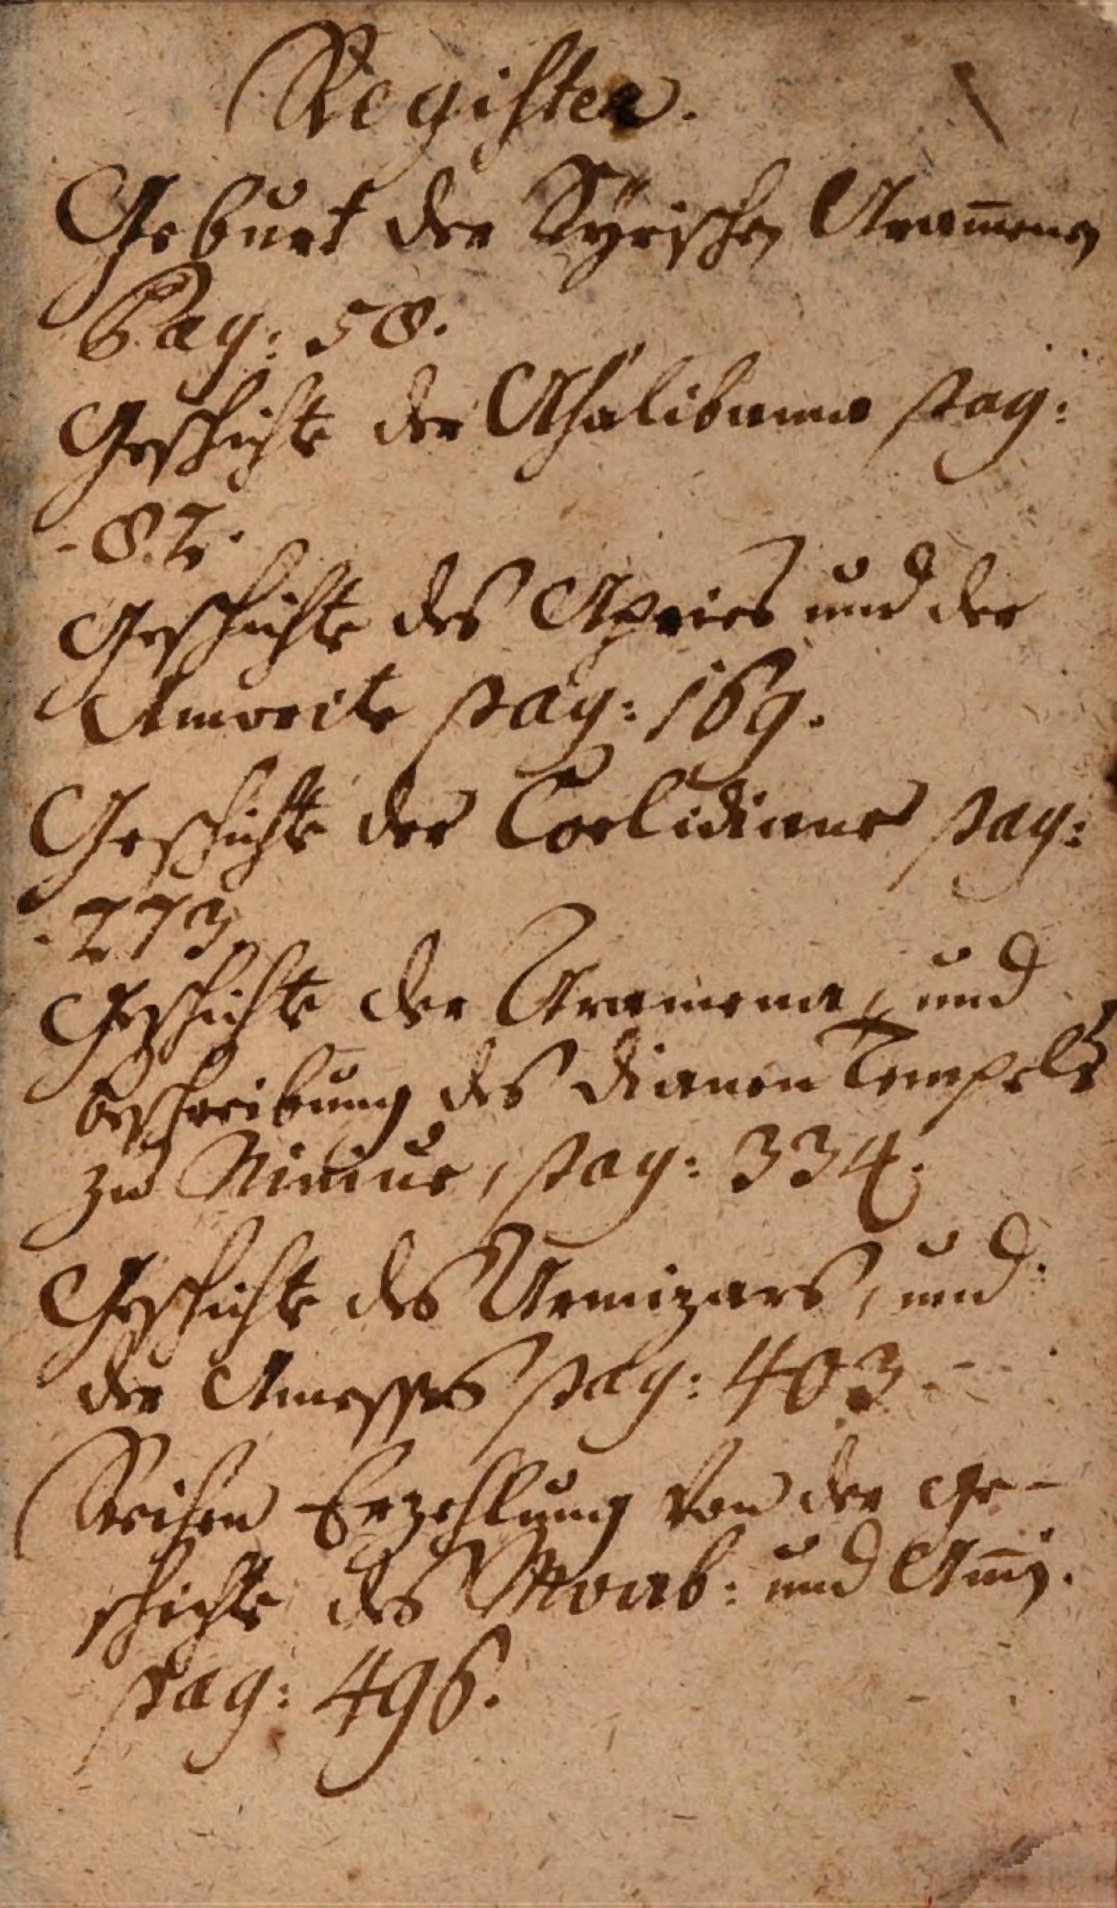 Register.
Geburt der Syrischen Aram̅enen
Pag: 58.
Geschichte der Ahalibama pag:
- 82.
Geschichte des Apries und der
Amorite pag: 169.
Geschichte der Coelidiane pag:
- 273
Geschichte der Aramena, und
beschreibung des Dianen Tempels
zu Ninive, pag: 334.
Geschichte des Armizars, und
der Amesses pag: 403 -
Erzehlung von der Ge-
schichte des Moab: und Am̅j.
pag: 496.